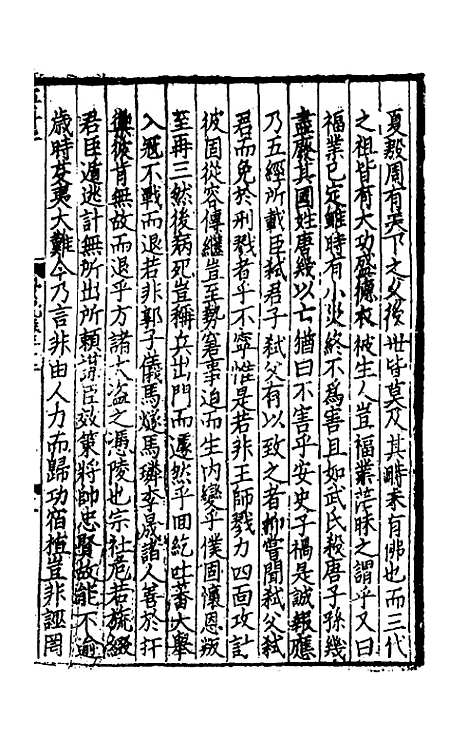 夏殷周有天下之久後世皆莫及其時未有佛也而三代
之祖皆有大功盛德衣被生人豈福業茫昧之謂乎又曰
福業已定雖時有小災終不爲害且如武氏殺唐子孫幾
盡廢其國姓唐幾以亡猶曰不害乎安史子禍是誠報應
乃五經所載臣弒君子弒父有以致之者抑嘗聞弒父弒
君而免於刑戮者乎不寧惟是若非王師戮力四面攻討
彼固從容傳繼豈至勢窘事迫而生内變乎僕固懷恩叛
至再三然後病死豈稱兵出門而遽然乎回紇吐蕃大舉
入寇不戰而退若非郭子儀馬燧馬璘李晟諸人善於扞
禦彼肯無故而退乎方諸大盗之憑陵也宗社危若旒綴
君臣遁逃計無所出所賴謀臣效策將帥忠賢故能不逾
歲時芟夷大難今乃言非由人力而歸功宿植豈非誣罔